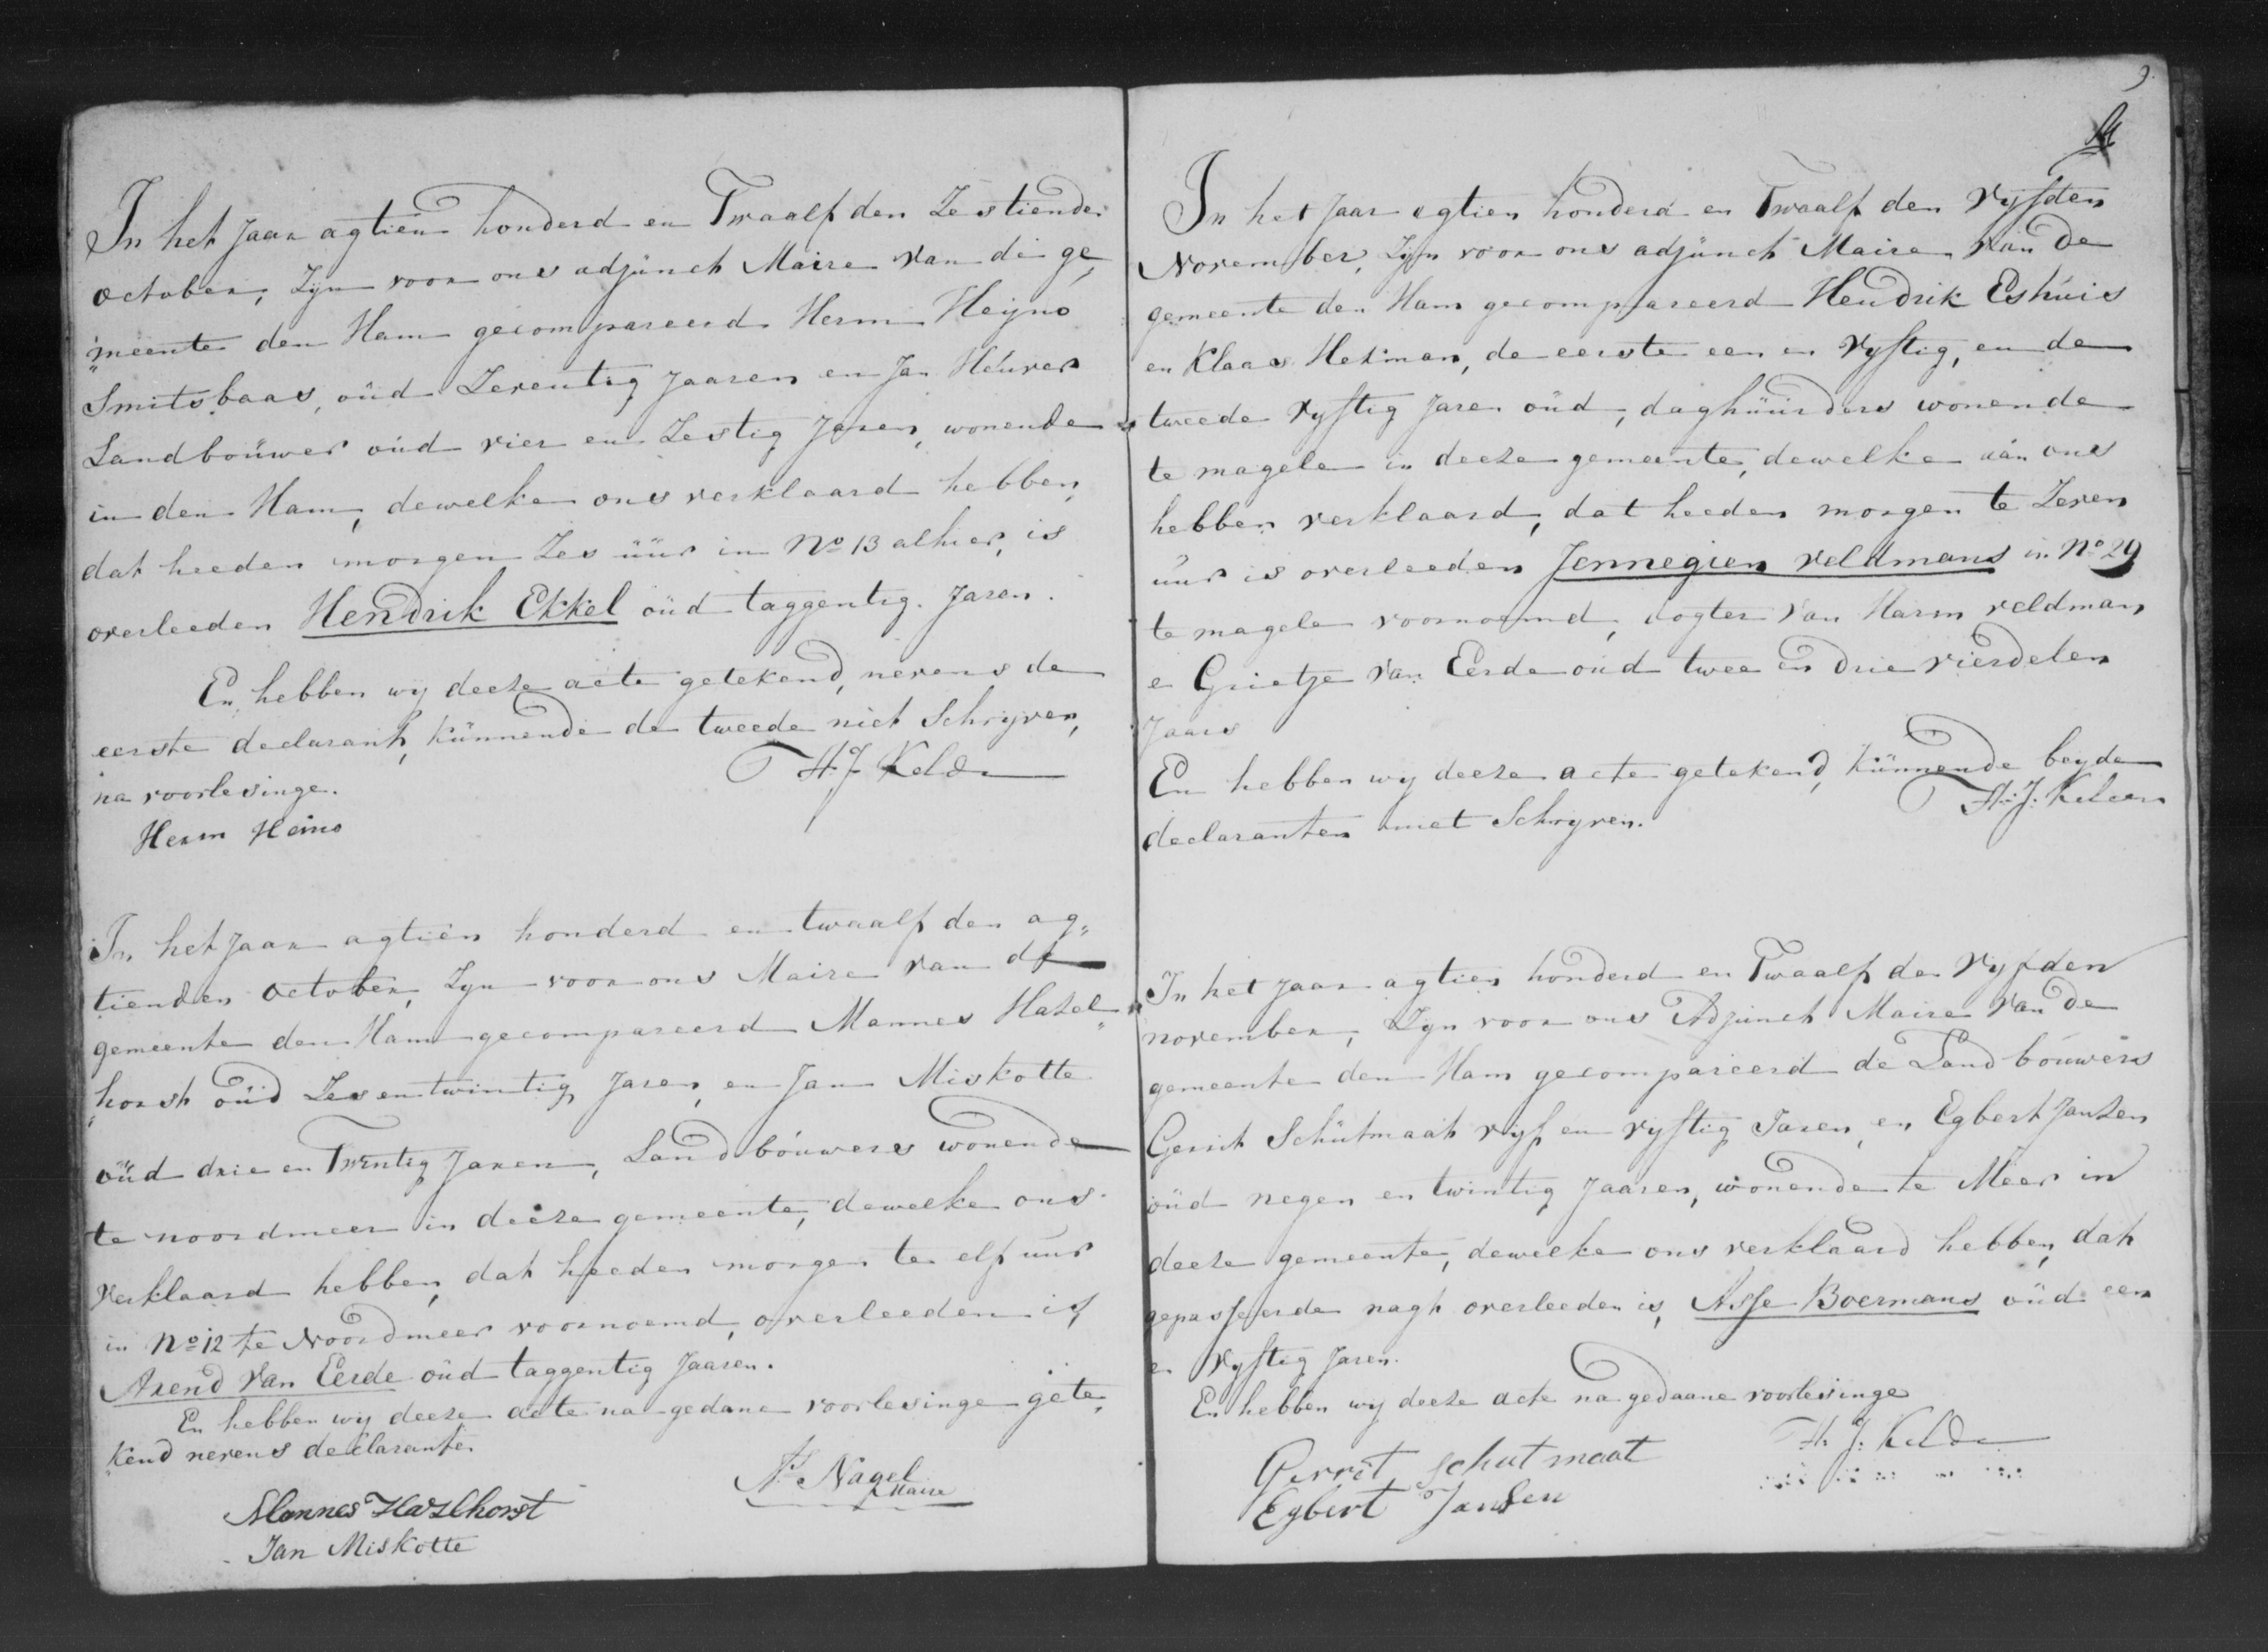 In het Jaar agtien honderd en Twaalf den Zestienden
october, Zyn voor ons adjunct Maire van de ge„
„meente den Ham gecompareerd Herm Heijno
Smitsbaas, oüd Zeventig Jaaren en Jan Heuver
Landboüwer oüd vier en Zestig Jaren, wonende
in den Ham, dewelke ons verklaard hebben,
dat heeden morgen Zes üür in No 13 alhier, is
overleeden Hendrik Ekkel oüd taggentig Jaren.
En hebben wy deeze acte getekend, nevens de
eerste declarant, künnende de tweede niet Schryven,
na voorlesinge.
H J Kelder
Herm Heino
In het Jaar agtien honderd en twaalf den ag„
tienden October, Zyn voor ons Maire van de
gemeente den Ham gecompareerd Mannes Hasel„
„horst oüd Zes en twintig Jaren, en Jan Miskotte
oüd drie en Twintig Jaren, Landboüwers wonende
te noordmeer in deeze gemeente, dewelke ons
verklaard hebben, dat heeden morgen te elf uur
in No 12 te Noordmeer voornoemd, overleeden is
Arend van Eerde oüd taggentig Jaaren.
En hebben wy deeze acte na gedane voorlesinge gete„
„kend nevens declarante.
Nagel
Maire
Mannes Hazlhorst
Jan Miskotte
9.
In het Jaar agtien honderd en Twaalf den vyfden
November, Zyn voor ons adjünct Maire van de
gemeente den Ham gecompareerd Hendrik Eshuis
en Klaas Hekman, de eerste een en vyftig, en de
tweede vyftig Jaren oüd, daghüürders wonende
te magele in deeze gemeente, dewelke aan ons
hebben verklaard, dat heeden morgen te Zeven
üür is overleeden Jennegien veldmans in No 29
te magele voornoemd, dogter van Harm veldman
en Grietje van Eerde oüd twee en drie vierdelen
Jaars
En hebben wy deeze acte getekend, künnende beyde
declaranten niet Schryven.
H: J: Kelder
In het Jaar agtien honderd en Twaalf den vyfden
november, Zyn voor ons Adjunct Maire van de
gemeente den Ham gecompareerd de Landboüwers
Gerrit Schütmaat vyf en vyftig Jaren, en Egbert Janzen
oüd negen en twintig Jaaren, wonende te Meer in
deeze gemeente, dewelke ons verklaard hebben, dat
gepasseerde nagt overleeden is, Asse Boermans oüd een
en vyftig Jaren.
En hebben wy deeze acte na gedaane voorlesinge
H. J: Kelder
Gerrit Schutmaat
Egbert Jansen